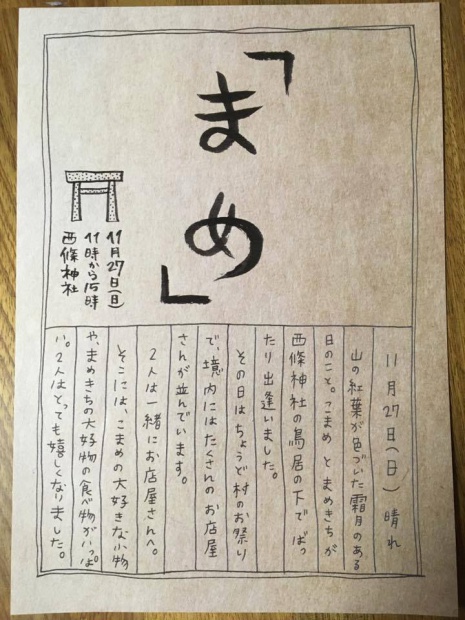 「まめ」
11月27日(日)
11時から15時
西條神社
11月27日(日) 晴れ
山の紅葉が色づいた霜月のある
日のこと。こまめとまめきちが
西條神社の鳥居の下でばっ
たり出逢いました。
その日はちょうど村のお祭り
で、境内にはたくさんのお店屋
さんが並んでいます。
2人は一緒にお店屋さんへ。
そこには、こまめの大好きな小物
や、まめきちの大好物の食べ物がいっぱ
い。2人はとっても嬉しくなりました。